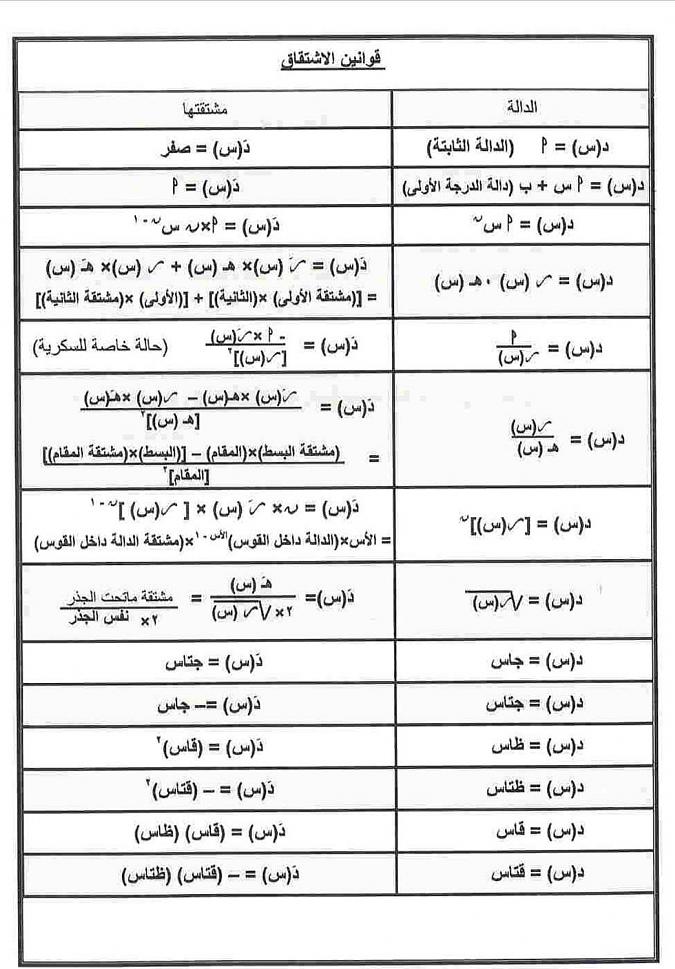 قوانين الاشتقاق
الدالة مشتقتها
د(س) = أ (الدالة الثابتة) دَ(س) = صفر
د(س) = أ س + ب (دالة الدرجة الأولى) دَ(س) = أ
د(س) = أ س^ن دَ(س) = أ×ن س^(ن-١)
د(س) = ر (س) . هـ (س) دَ(س) = رَ (س)× هـ (س) + ر (س)× هـَ (س)
= [(مشتقة الأولى) ×(الثانية)] + [(الأولى) ×(مشتقة الثانية)]
د(س) = أ / ر(س) دَ(س) = - أ ×رَ(س) / [ر(س)]^٢ (حالة خاصة للسكرية)
د(س) = ر(س) / هـ (س) دَ(س) = رَ(س) ×هـ(س) – ر(س) ×هـَ(س) / [هـ (س)]^٢
= (مشتقة البسط)×(المقام) – [(البسط)×(مشتقة المقام)] / [المقام]^٢
د(س) = [ر(س)]^ن دَ(س) = ن× رَ (س) × [ ر(س) ]^(ن-١)
= الأس×(الدالة داخل القوس)^(الأس-١)×(مشتقة الدالة داخل القوس)
د(س) = √ر(س) دَ(س)= هـَ (س) / ٢×√ر (س) = مشتقة ماتحت الجذر / ٢× نفس الجذر
د(س) = جاس دَ(س) = جتاس
د(س) = جتاس دَ(س) =– جاس
د(س) = ظاس دَ(س) = (قاس)^٢
د(س) = ظتاس دَ(س) = – (قتاس)^٢
د(س) = قاس دَ(س) = (قاس) (ظاس)
د(س) = قتاس دَ(س) = – (قتاس) (ظتاس)